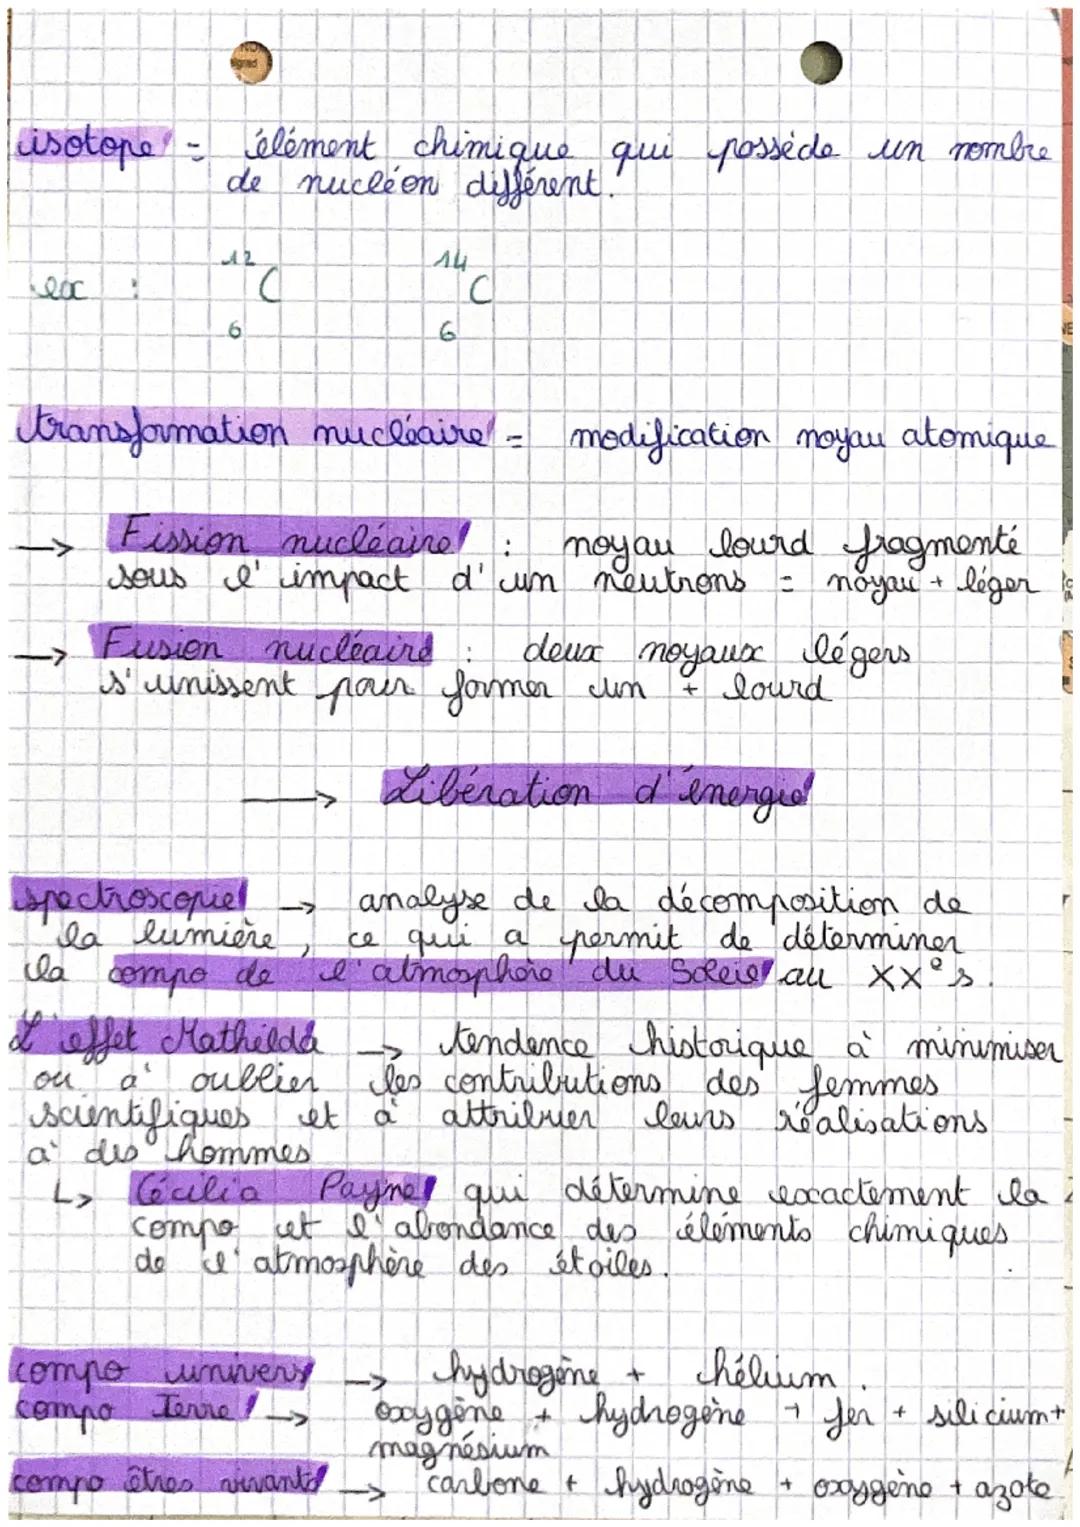 isotope = élément chimique qui possède un nombre
de nucléon différent.
ex : 12 C 6 14 C 6
transformation nucléaire = modification noyau atomique
→ Fission nucléaire : noyau lourd fragmenté
sous l'impact d'un neutrons = noyau + léger
→ Fusion nucléaire : deux noyaux légers
s'unissent pour former un + lourd
→ Libération d'énergie
spectroscopie → analyse de la décomposition de
la lumière, ce qui a permit de déterminer
la compo de l'atmosphère du Soleil au XXe s.
L'effet Mathilda → tendance historique à minimiser
ou à oublier les contributions des femmes
scientifiques et à attribuer leurs réalisations
à des hommes
↳ Cécilia Payne qui détermine exactement la
compo et l'abondance des éléments chimiques
de l'atmosphère des étoiles.
compo univers → hydrogène + hélium.
compo Terre → oxygène + hydrogène + fer + silicium +
magnésium
compo êtres vivants → carbone + hydrogène + oxygène + azote